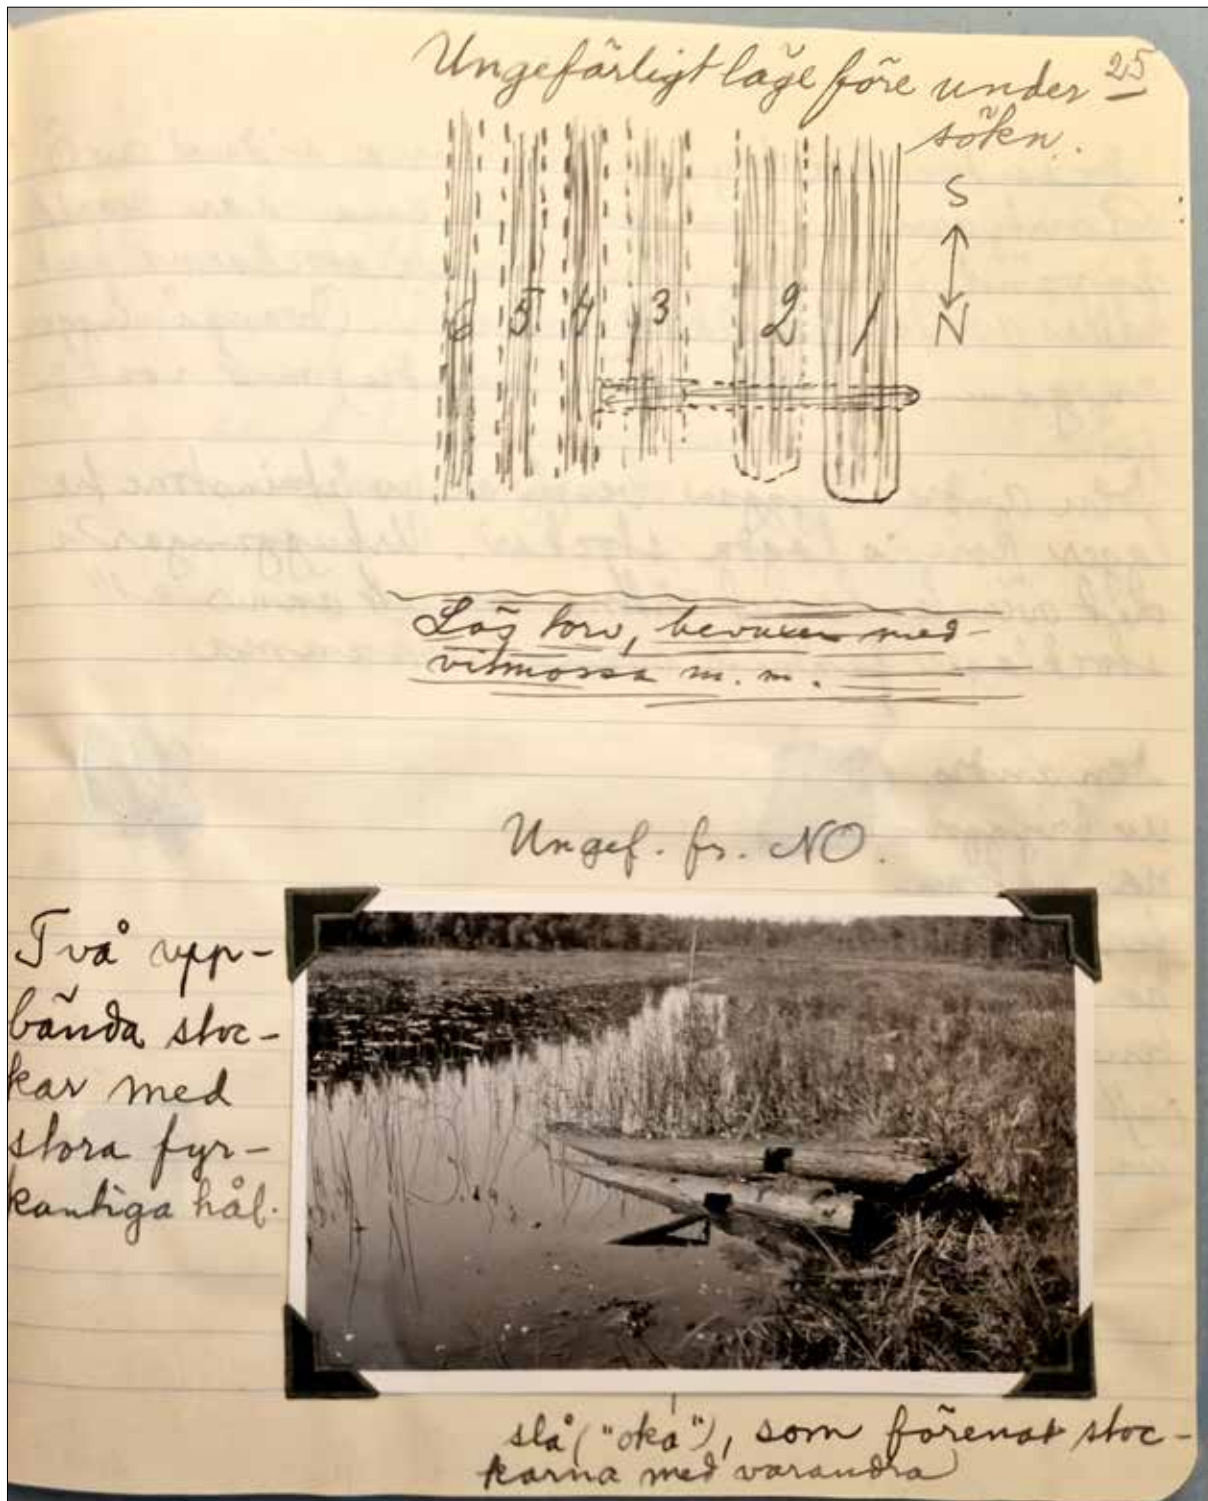 25
Ungefärligt läge före under
sökn.
S
N
6 5 4 3 2 1
Lös torv, bevuxen med
vitmossa m. m.
Ungef. fr. NO.
Två upp-
bända stoc-
kar med
stora fyr-
kantiga hål.
slå ("oka"), som förenat stoc-
karna med varandra